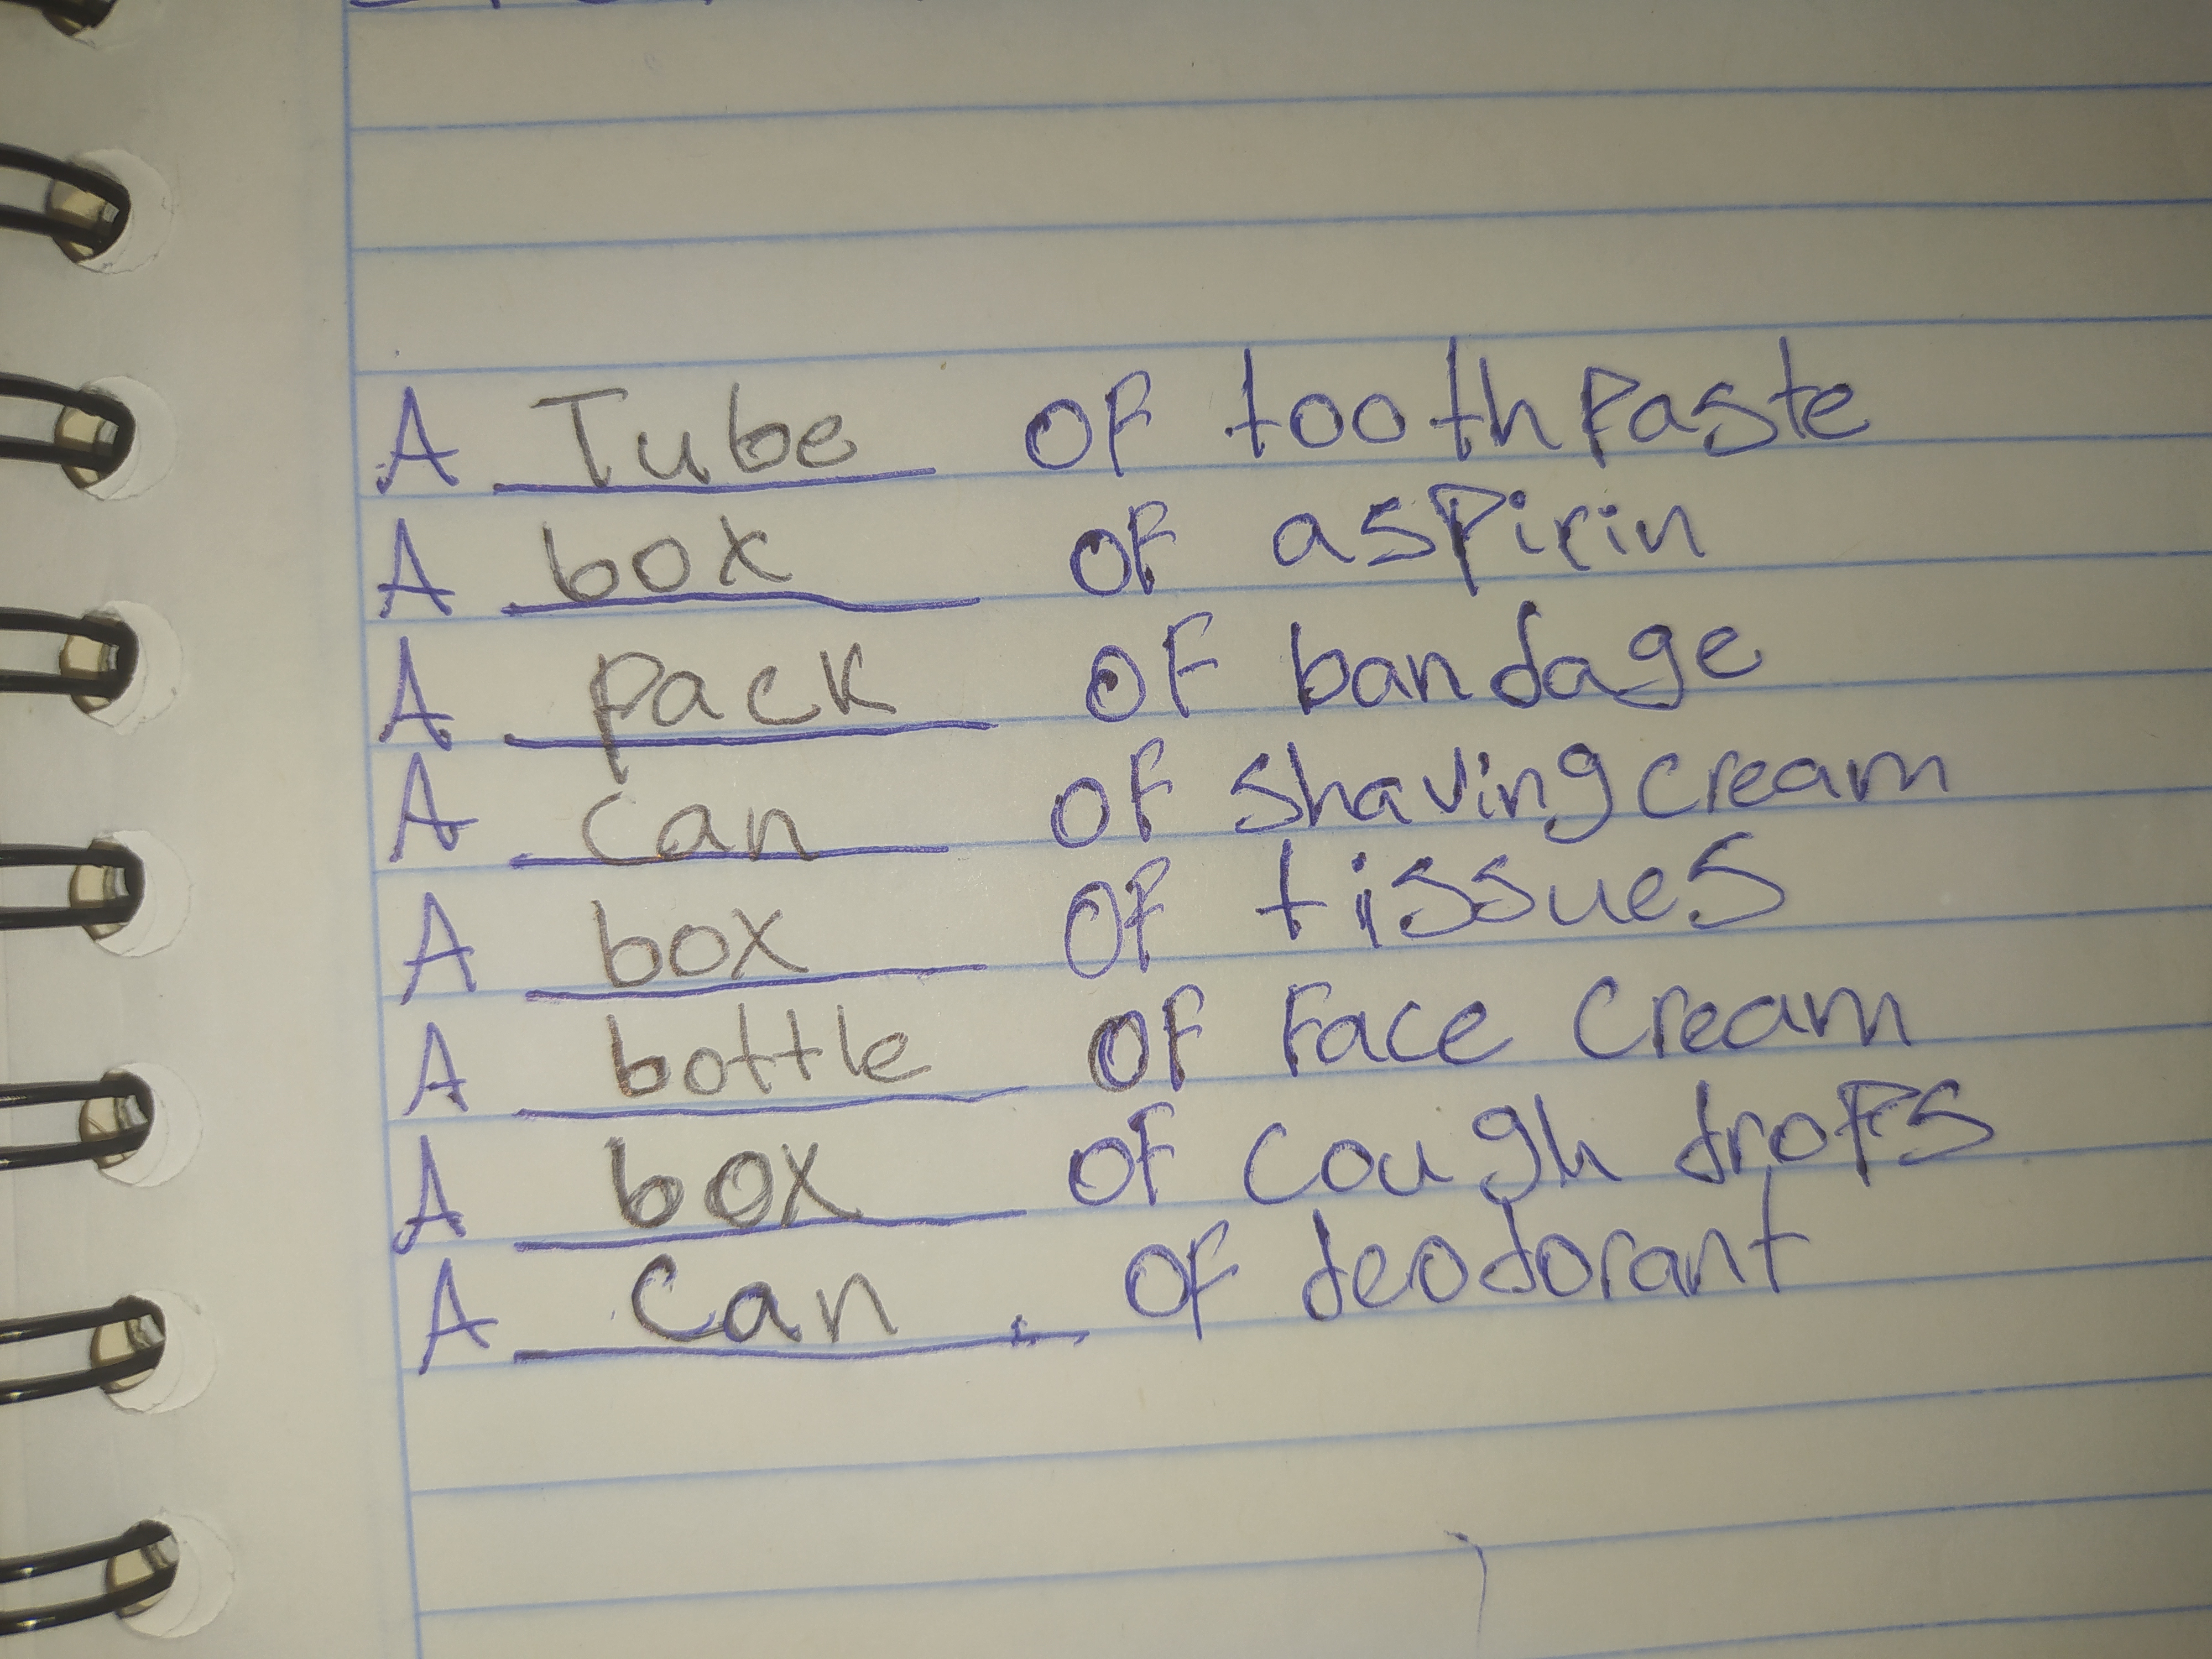 A Tube of toothpaste
A box of aspirin
A pack of bandage
A can of shaving cream
A box of tissues
A bottle of Face cream
A box of cough drops
A can of deodorant